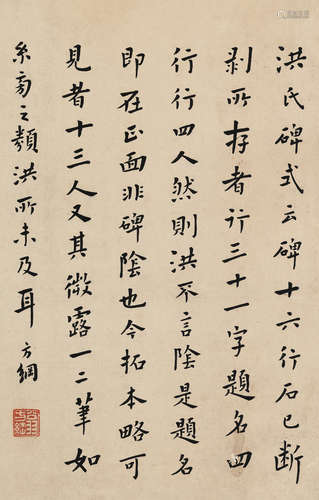 洪氏碑式云碑十六行石已斷
剥所存者行三十一字題名四
行行四人然則洪不言陰是題名
即在正面非碑陰也今拓本略可
見者十三人又其微露一二筆如
糸旁之類洪所未及耳 方綱